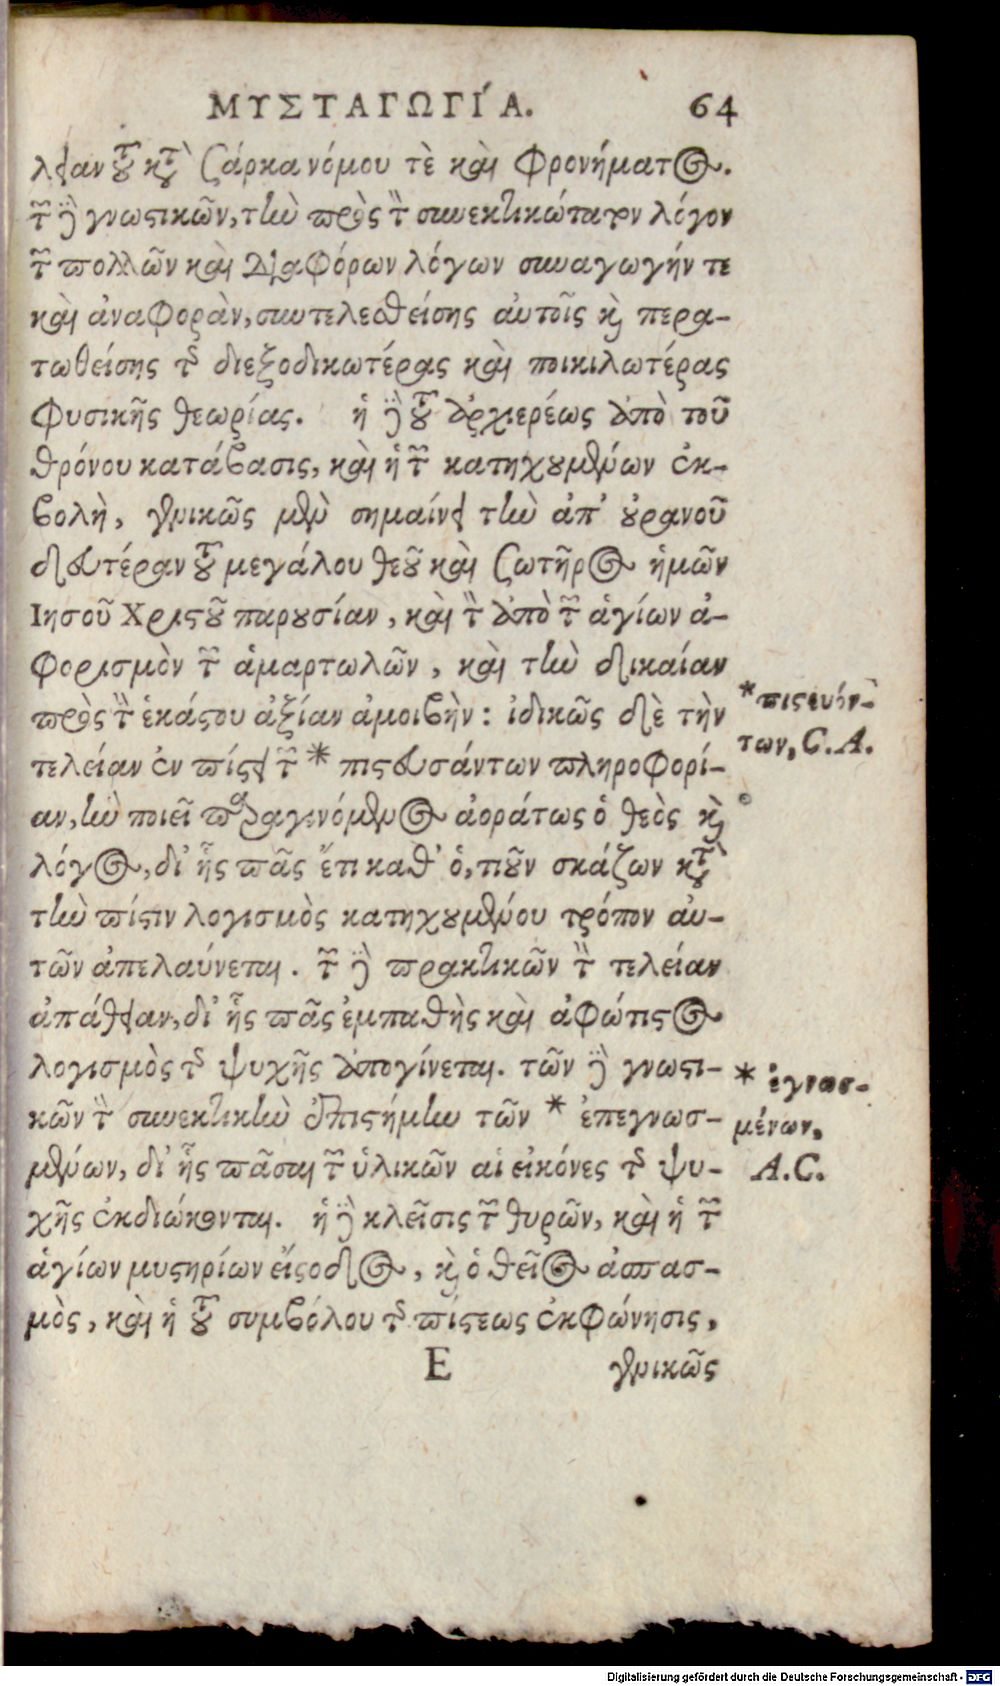 ΜΥΣΤΑΓΩΓΊΑ. 64
λειαν τοῦ κατὰ σάρκα νόμου τὲ καὶ φρονήματος.
τῶν δὲ γνωστικῶν, τὴν πρὸς τὸν συνεκτικώτατον λόγον
τῶν πολλῶν καὶ διαφόρων λόγων συναγωγήν τε
καὶ ἀναφορὰν, συντελεσθείσης αὐτοῖς καὶ περα-
τωθείσης τῆς διεξοδικωτέρας καὶ ποικιλωτέρας
φυσικῆς θεωρίας. ἡ δὲ τοῦ ἀρχιερέως ἀπὸ τοῦ
θρόνου κατάβασις, καὶ ἡ τῶν κατηχουμένων ἐκ-
βολὴ, γενικῶς μὲν σημαίνει τὴν ἀπ' οὐρανοῦ
δευτέραν τοῦ μεγάλου θεοῦ καὶ σωτῆρος ἡμῶν
Ιησοῦ Χριστοῦ παρουσίαν, καὶ τὸν ἀπὸ τῶν ἁγίων ἀ-
φορισμὸν τῶν ἁμαρτωλῶν, καὶ τὴν δικαίαν
πρὸς τὴν ἑκάστου ἀξίαν ἀμοιβὴν: ἰδικῶς δὲ τὴν
τελείαν ἐν πίστει τῶν * πιστευσάντων πληροφορί-
αν, ἣν ποιεῖ παραγενόμενος ἀοράτως ὁ θεὸς καὶ
λόγος, δι' ἧς πᾶς ἔτι καθ' ὁ, τιοῦν σκάζων κατὰ
τὴν πίστιν λογισμὸς κατηχουμένου τρόπον αὐ-
τῶν ἀπελαύνεται. τῶν δὲ πρακτικῶν τὴν τελείαν
ἀπάθειαν, δι' ἧς πᾶς ἐμπαθὴς καὶ ἀφώτιστος
λογισμὸς τῆς ψυχῆς ἀπογίνεται. τῶν δὲ γνωστι-
κῶν τὴν συνεκτικὴν ἐπιστήμην τῶν * ἐπεγνωσ-
μένων, δι' ἧς πᾶσαι τῶν ὑλικῶν αἱ εἰκόνες τῆς ψυ-
χῆς ἐκδιώκονται. ἡ δὲ κλεῖσις τῶν θυρῶν, καὶ ἡ τῶν
ἁγίων μυστηρίων εἴσοδος, καὶ ὁ θεῖος ἀσπασ-
μὸς, καὶ ἡ τοῦ συμβόλου τῆς πίστεως ἐκφώνησις,
Ε γενικῶς
* πιστευόν-
των, C. A.
* ἐγνωσ-
μένων,
A. C.
Digitalisierung gefördert durch die Deutsche Forschungsgemeinschaft - DFG